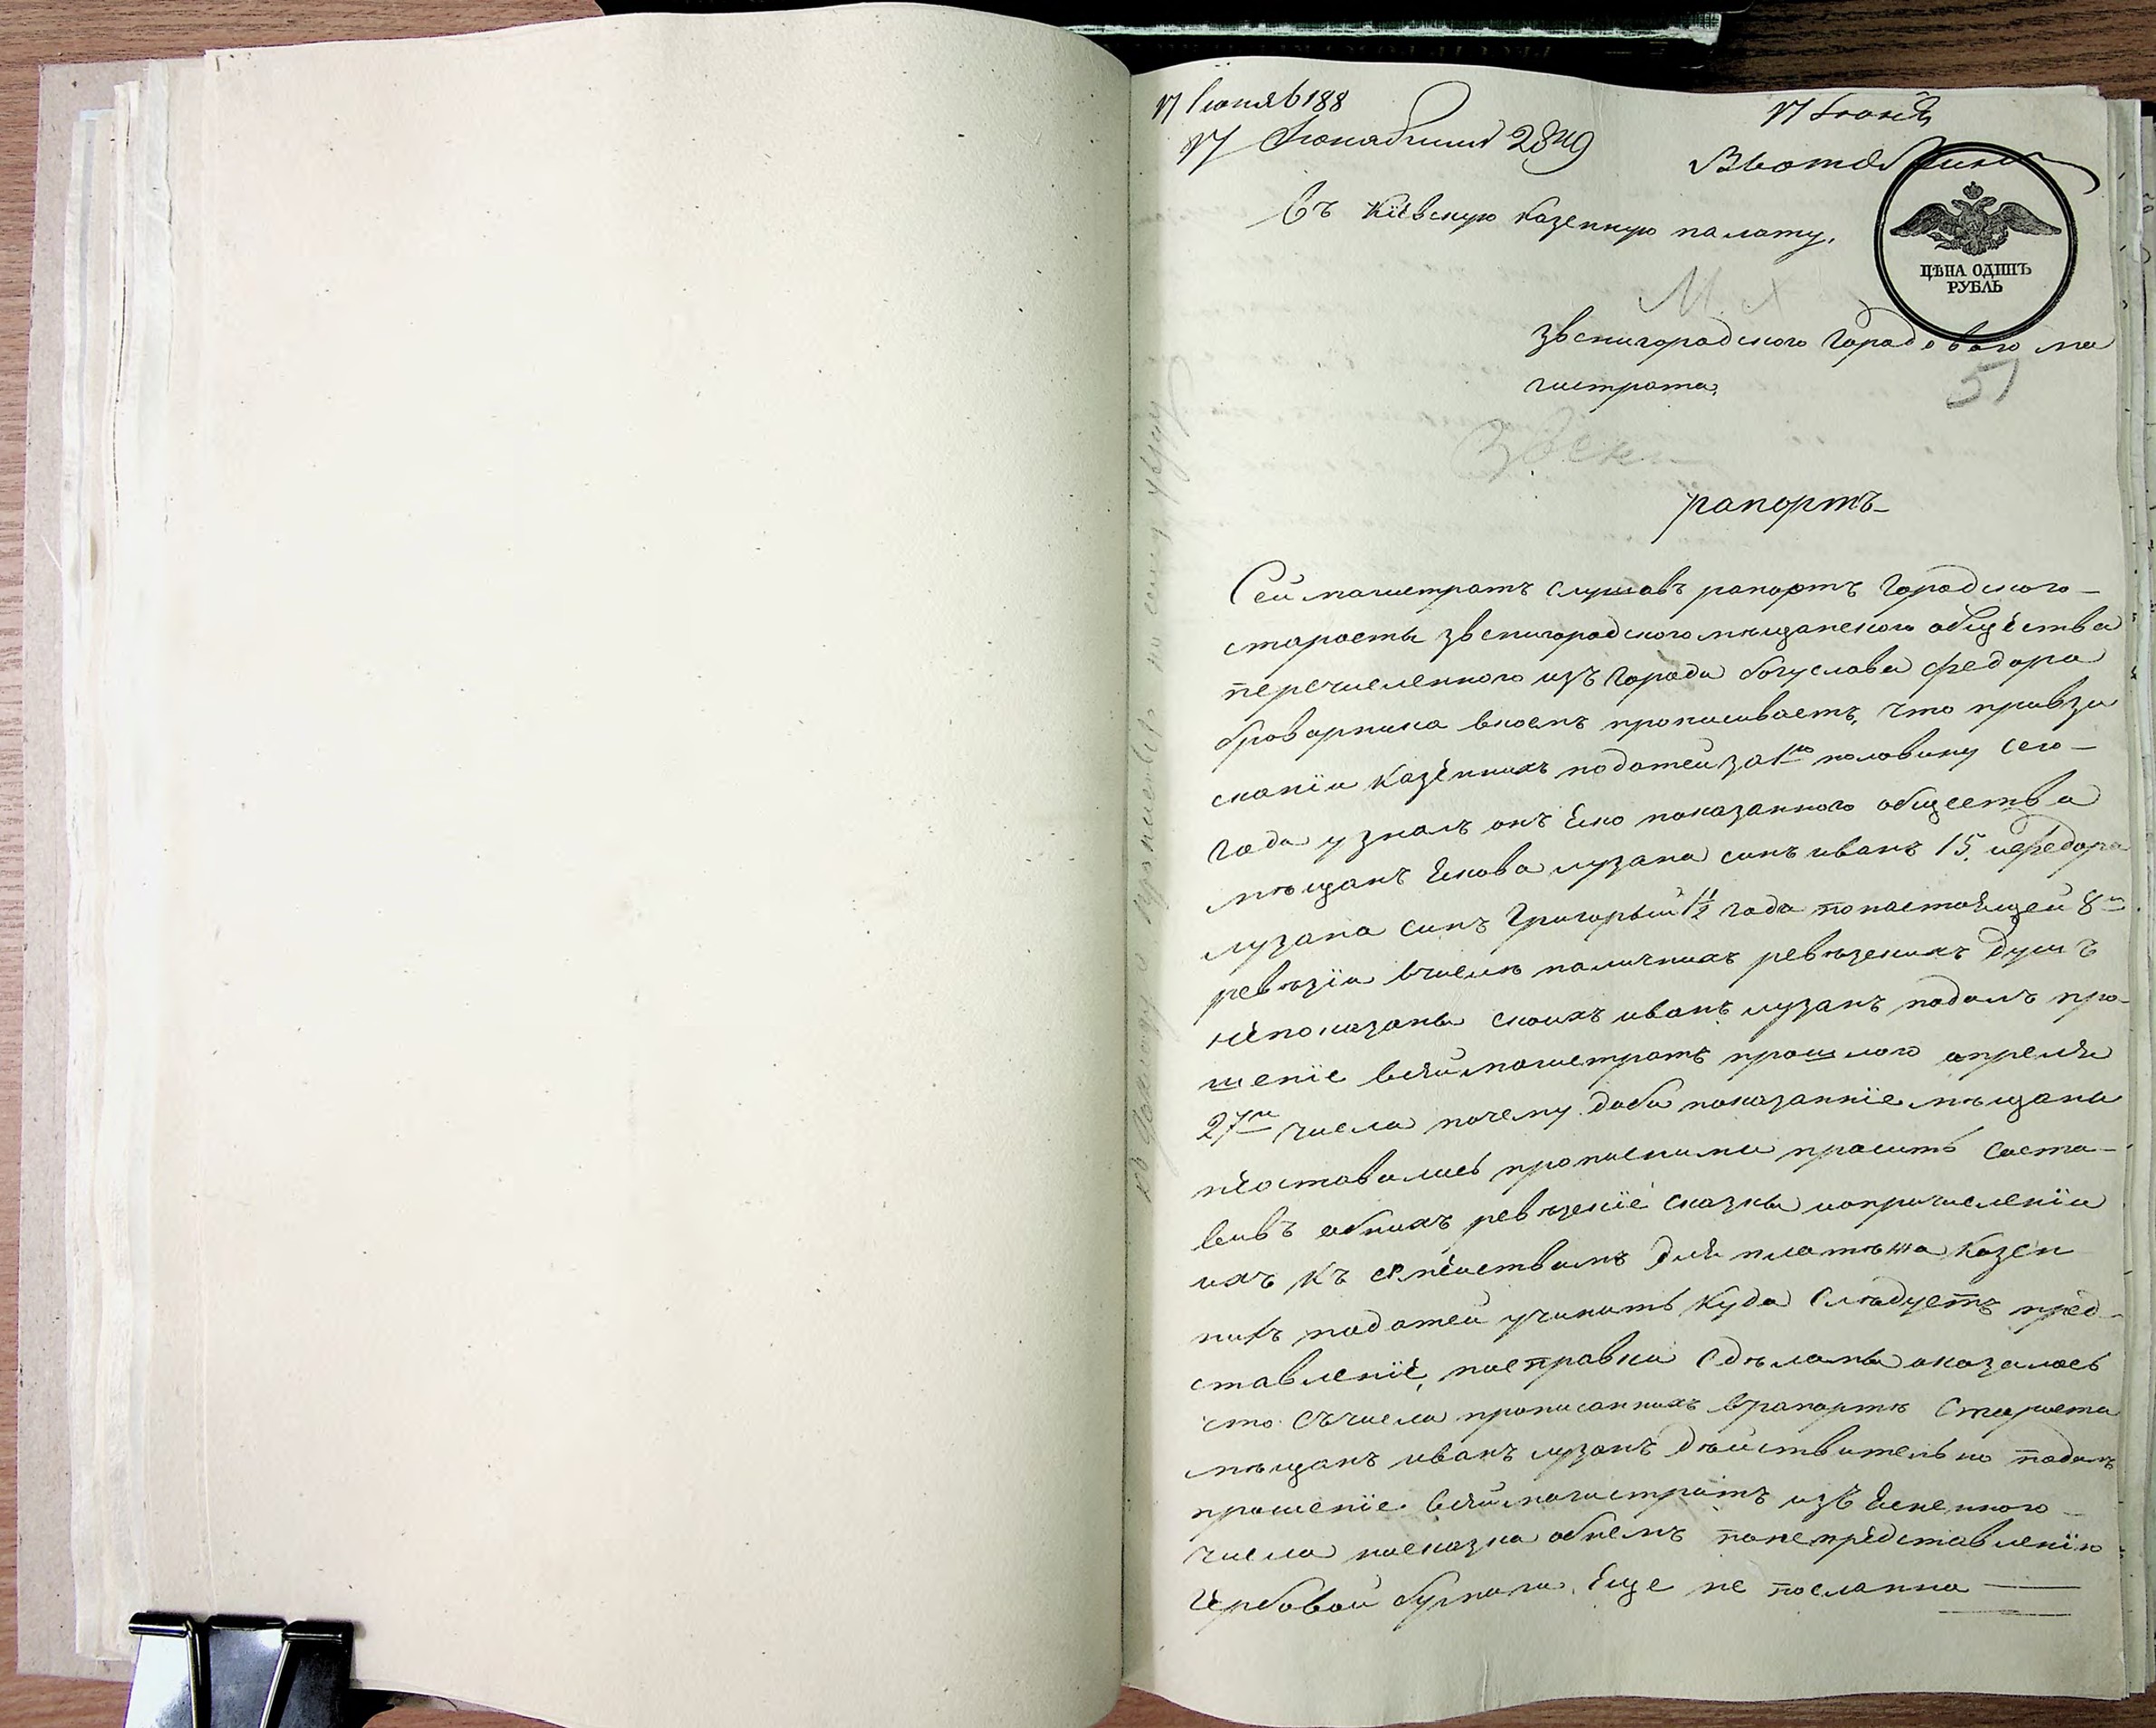 17 Іюня 6188
17 Іюня 2849
17 Іюня
Въ Кіевскую казенную палату,
ЦѢНА ОДИНЪ
РУБЛЬ
Звенигородского Городового ма
гистрата,
51
Звени
рапортъ
Сей магистратъ слушавъ рапортъ Городского
старосты звенигородского мѣщанского общества
перечисленного изъ города богуслава федора
броварника вкоемъ прописываетъ, что привзи
сканіи казенныхъ податей за 1ю половину сего
года узналъ онъ Что показанного общества
мѣщанъ Якова лузана синъ иванъ 15. ифедора
лузана синъ Григорый 1½ года понастоящей 8й
ревѣзіи вчислѣ наличнихъ ревѣзскихъ душъ
непоказаны скоихъ иванъ лузанъ подалъ про
шеніе всеймагистратъ прошлого апреля
27го числа почему дабы показанніе мѣщана
неоставались прописними проситъ соста
вивъ обнихъ ревѣзскіе сказки ипричисленіи
ихъ къ семействамъ для платѣжа казен
нихъ податей учинить куда Слѣдуетъ пред
ставленіе, посправки сдѣланы оказалось
что съчисла прописаннихъ врапортѣ Старости
мѣщанъ иванъ лузанъ дѣйствительно подалъ
прошеніе всеймагистратъ изъясненного
числа носказка обнемъ понепредставленію
Гербовой бумаги. Еще не посланна